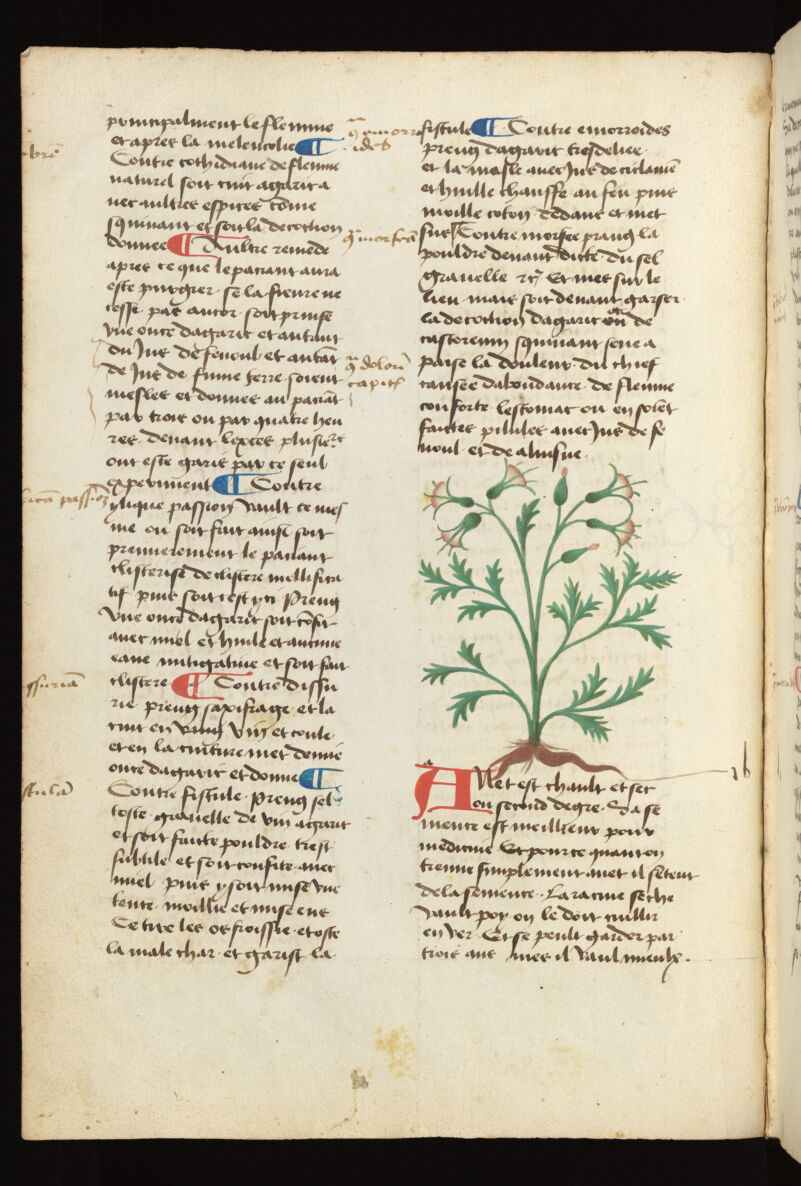 principalment le flemme
et apres la melencolie ¶
Contre cothidiane de fleume
naturel soit cuit agarit a
uec aultres espices cõme
squinant et soit la decoction
donnee ¶ Aultre remede
apres ce que le paciant aura
este purgier se la fieure ne
cesse par auctor soit prinse
vne once dagarit et autant
du Jus de fenoul et autãt
de Jus de fume terre soient
mesles et donnes au paciãt
par trois ou par quatre heu
res deuant lexces plusieˢ
ont este garis par ce seul
experiment ¶ Contre
ylique passion vault ce mes
me ou soit fait ainsi soit
premierement le paciant
clisterise de clistere mollifica
tif puis soit cest yci Preng
vne once dagarit soit cõfit
auec miel et huile et aucune
eaue mitigatiue et soit fait
clistere ¶ Contre dissu
rie preng saxifrage et la
cuit en bum vin et coule
et en la cuiture met demie
once dagarit et donne ¶
Contre fistule preng sel
toste grauelle de vin agarit
et soit faicte pouldre tres
subtile et soit confite auec
miel puis y soit mise vne
tente moillie et mise ens
Ce tire les os froissie et oste
la male char et garist la
fistule ¶ Contre emorroides
preng dagarit tresdeliee
et la mesle auec Jus de ciclamẽ
et huille chauffe au feu puis
moille coton dedans et met
sus Contre morfee preng la
pouldre deuant dicte du sel
grauelle &c Et met sur le
lieu mais soit deuant garser
la decoction dagarit ou de
castoreum squinant sene a
paise la douleur du chief
causee dabondance de fleume
conforte lestomac ou en solẽt
faictes pilules auec Jus de fe
noul et de aluisne
Anet est chault et sec
ou second degre Sa se
mence est meillieur pour
medicine Et pource quant on
treuue simplement anet il sentent
de la semence La racine seche
vault poy on le doit cuillir
en ver Et se peult garder par
trois ans mes il vaul mieulx